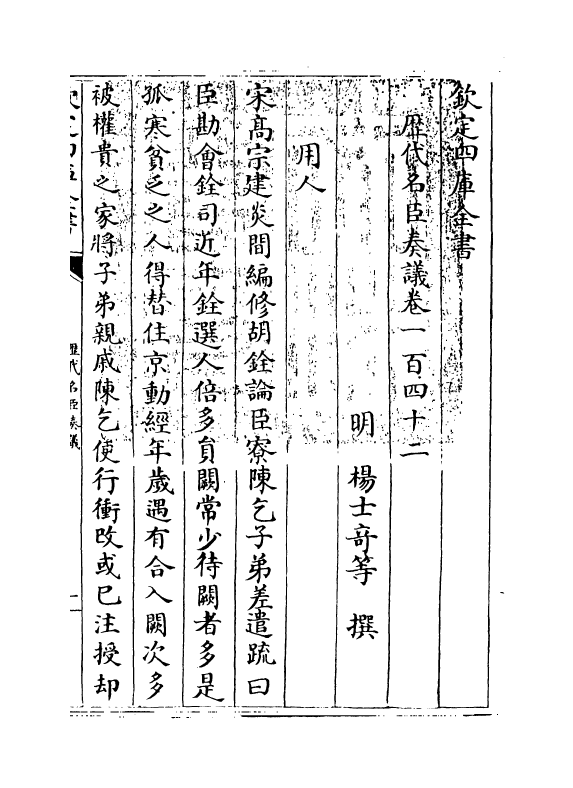 欽定四庫全書
歴代名臣奏議卷一百四十二
明 楊士竒等 撰
用人
宋髙宗建炎間編修胡銓論臣寮陳乞子弟差遣疏曰
臣勘會銓司近年銓選人倍多員闕常少待闕者多是
孤寒貧乏之人得替住京動經年歲遇有合入闕次多
被權貴之家將子弟親戚陳乞使行衝改或已注授却
歴代名臣奏議
一